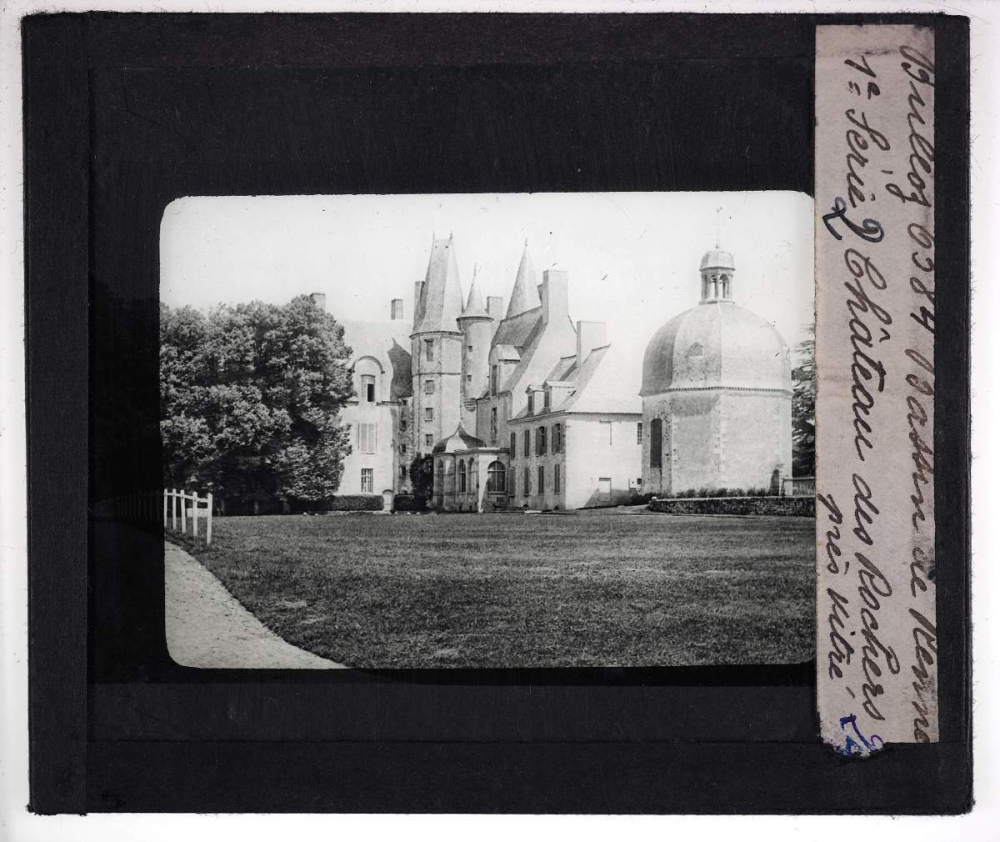 Bulloz 6384 Bassin de Renne
1e Serie 2 Château des Rochers
près vitré